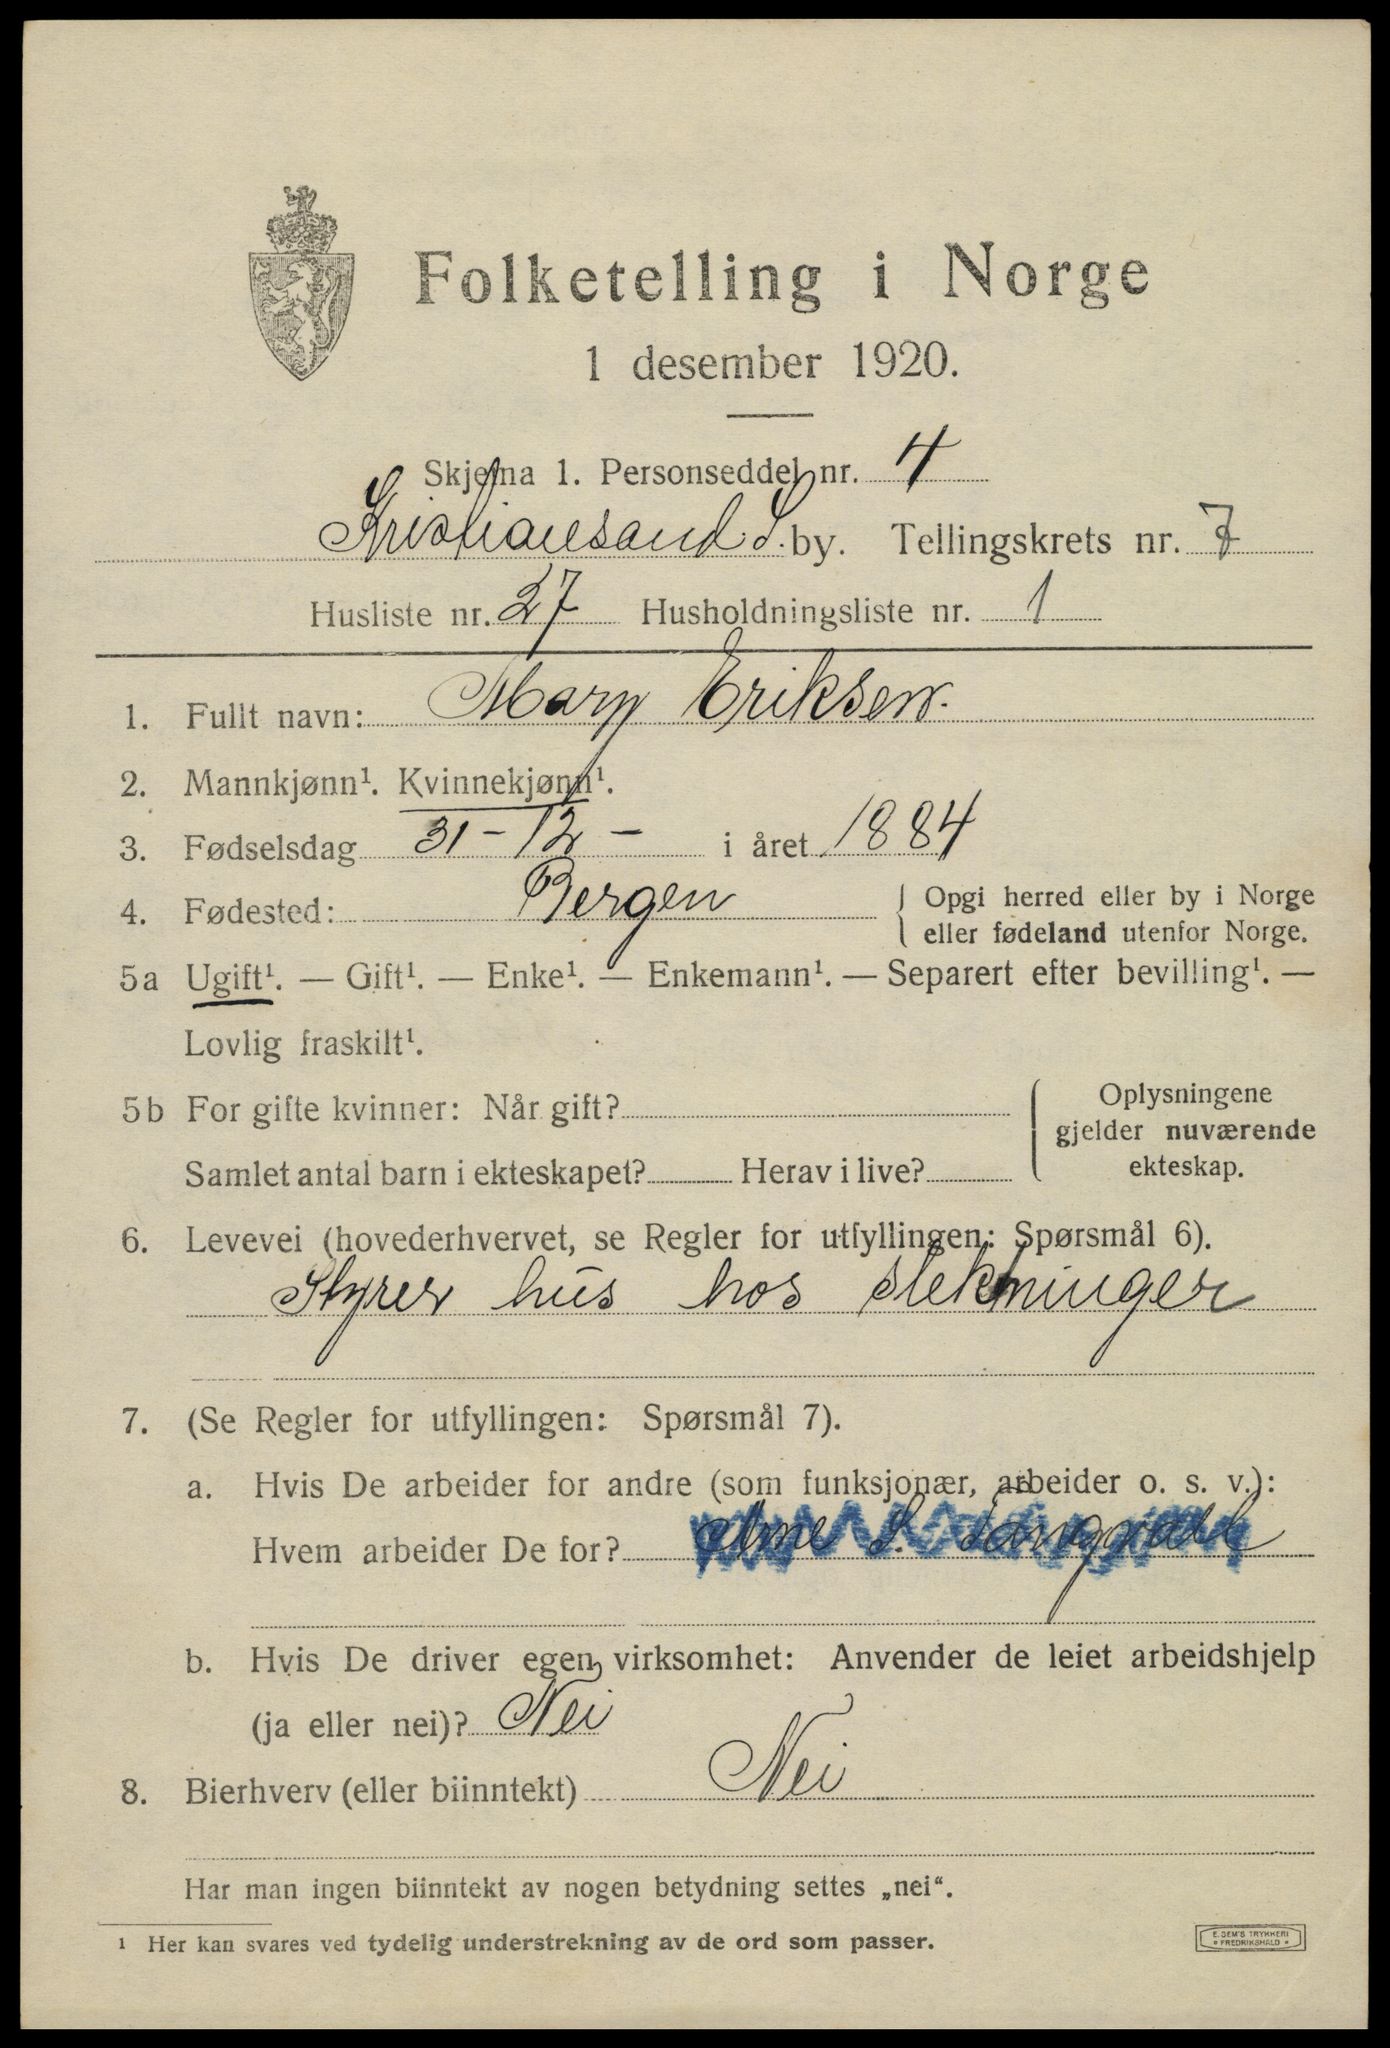 Folketelling i Norge
1 desember 1920.
Skjema 1. Personseddel nr. 4
Kristiansand S. by. Tellingskrets nr. 7
Husliste nr. 27 Husholdningsliste nr. 1
1. Fullt navn: Mary Eriksen.
2. Mannkjønn¹. Kvinnekjønn¹.
3. Fødselsdag 31-12- i året 1884
4. Fødested: Bergen { Opgi herred eller by i Norge
eller fødeland utenfor Norge.
5a Ugift¹. — Gift¹. — Enke¹. — Enkemann¹. — Separert efter bevilling¹. —
Lovlig fraskilt¹.
5b For gifte kvinner: Når gift? { Oplysningene
gjelder nuværende
Samlet antal barn i ekteskapet? Herav i live? ekteskap.
6. Levevei (hovederhvervet, se Regler for utfyllingen: Spørsmål 6).
Styrer hus hos slektninger
7. (Se Regler for utfyllingen: Spørsmål 7).
a. Hvis De arbeider for andre (som funksjonær, arbeider o. s. v.):
Hvem arbeider De for? Arne S.
b. Hvis De driver egen virksomhet: Anvender de leiet arbeidshjelp
(ja eller nei)? Nei
8. Bierhverv (eller biinntekt) Nei
Har man ingen biinntekt av nogen betydning settes „nei“.
¹ Her kan svares ved tydelig understrekning av de ord som passer.
E. SEM'S TRYKKERI
FREDRIKSHALD